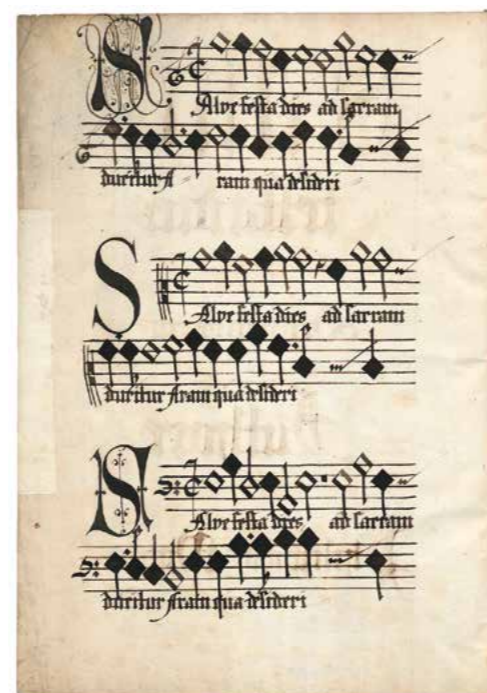 Salve festa dies ad sacram
ducitur A ram qua desideri
Salve festa dies ad sacram
ducitur Aram qua desideri
Salve festa dies ad sacram
ducitur Aram qua desideri